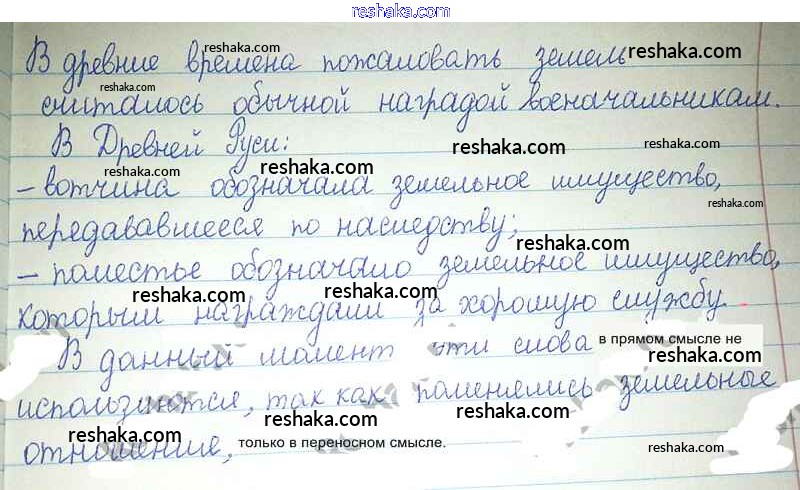 reshaka.com
В древние времена пожаловать земель
reshaka.com reshaka.com
reshaka.com
считалось обычной наградой военачальникам.
reshaka.com reshaka.com
В Древней Руси:
reshaka.com reshaka.com
reshaka.com
– вотчина обозначала земельное имущество,
reshaka.com
передававшееся по наследству;
reshaka.com
reshaka.com
– поместье обозначало земельное имущество,
reshaka.com reshaka.com
которым награждали за хорошую службу.
reshaka.com
В данный момент эти слова в прямом смысле не
reshaka.com reshaka.com
используются, так как поменялись земельные
reshaka.com reshaka.com
отношение, только в переносном смысле.
reshaka.com reshaka.com
reshaka.com